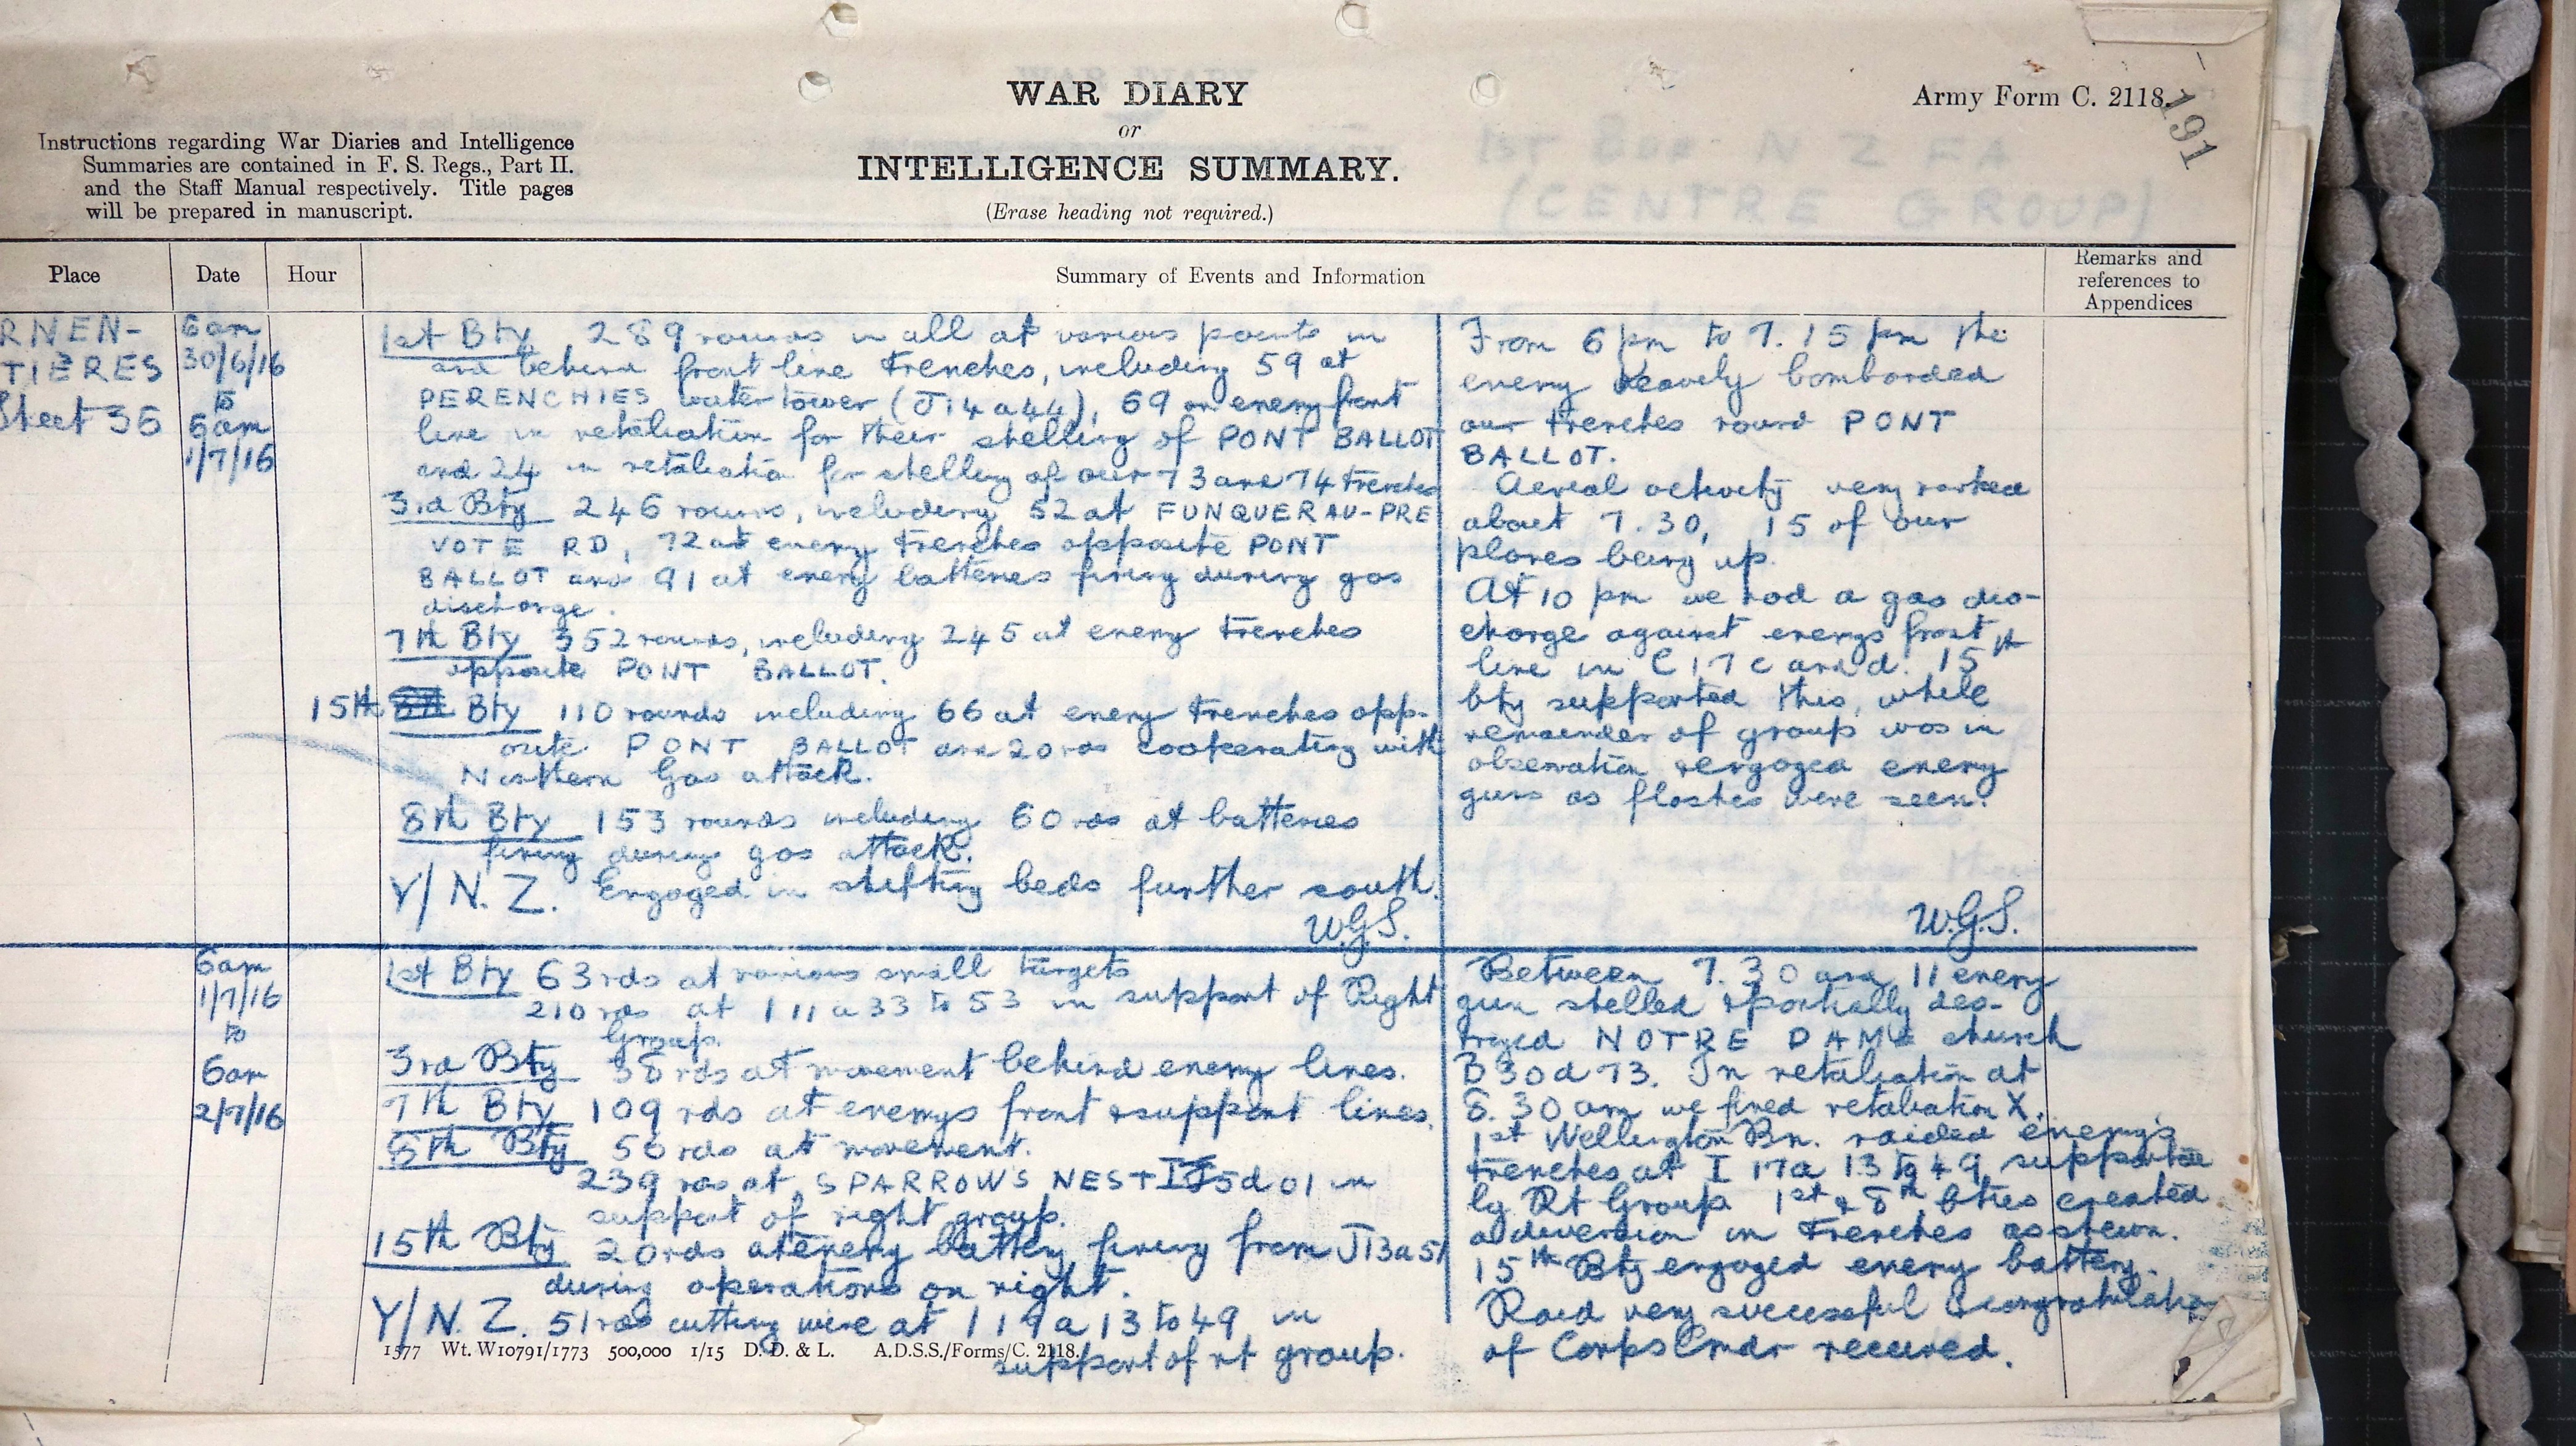 WAR DIARY
or
INTELLIGENCE SUMMARY.
(Erase heading not required.)
Army Form C. 2118.
191
Instructions regarding War Diaries and Intelligence
Summaries are contained in F. S. Regs., Part II.
and the Staff Manual respectively. Title pages
will be prepared in manuscript.
1ST BDE N Z FA
(CENTRE GROUP)
Place
Date
Hour
Summary of Events and Information
Remarks and
references to
Appendices
RNEN-
TIERES
Sheet 36
6am
30/6/16
to
6am
1/7/16
1st Bty 289 rounds in all at various points in
and behind front line trenches, including 59 at
PERENCHIES water tower (J14a44), 69 on enemy front
line in retaliation for their shelling of PONT BALLOT
and 24 in retaliation for shelling of our 73 and 74 trenches
3rd Bty 246 rounds, including 52 at FUNQUERAU-PRE
VOTE RD, 72 at enemy trenches opposite PONT
BALLOT and 91 at enemy batteries firing during gas
discharge.
7th Bty 352 rounds, including 245 at enemy trenches
opposite PONT BALLOT.
15th Bty 110 rounds including 66 at enemy trenches opp-
osite PONT BALLOT and 20 rds cooperating with
Northern Gas attack.
8th Bty 153 rounds including 60 rds at batteries
firing during gas attack.
Y/N.Z. Engaged in shifting beds further south.
W.G.S.
From 6 pm to 7.15 pm the
enemy heavely bombarded
our trenches round PONT
BALLOT.
Aereal activity very marked
about 7.30, 15 of our
planes being up.
At 10 pm we had a gas dis-
charge against enemys front
line in C17c and d. 15th
bty supported this, while
remainder of group was in
observation & engaged enemy
guns as flashes were seen.
W.G.S.
6am
1/7/16
to
6am
2/7/16
1st Bty 63 rds at various small targets
210 rds at I11a33 to 53 in support of Right
Group.
3rd Bty 38 rds at movement behind enemy lines.
7th Bty 109 rds at enemys front & support lines.
8th Bty 50 rds at movement.
239 rds at SPARROWS NEST I5d01 in
support of right group.
15th Bty 20 rds at enemy battery firing from J13a51
during operations on right.
Y/N.Z. 51 rds cutting wire at I17a13 to 49 in
support of rt group.
Between 7.30 and 11 enemy
gun shelled & partially des-
troyed NOTRE DAME church
B30d73. In retaliation at
8.30 am we fired retaliation X.
1st Wellington Bn. raided enemy's
trenches at I17a 13 to 49, supported
by Rt Group. 1st & 8th bties created
a diversion in trenches as shewn.
15th Bty engaged enemy battery.
Raid very successful & congratulations
of Corps Cmdr received.
1577 Wt. W10791/1773 500,000 1/15 D. D. & L. A.D.S.S./Forms/C. 2118.